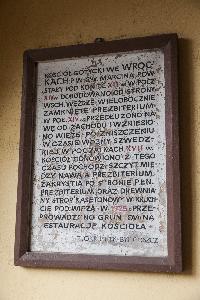 KOŚCIÓŁ GOTYCKI WE WROC
KACH P.W. ŚW. MARCINA POW
STAŁY POD KONIEC XIII W. W POCZ.
XIV W. DOBUDOWANO OD STRONY
WSCH. WĘŻSZE WIELOBOCZNIE
ZAMKNIĘTE PREZBITERIUM.
W POŁ. XIV W. PRZEDŁUŻONO NA
WĘ OD ZACHODU I WZNIESIO
NO WIEŻĘ. PO ZNISZCZENIU
W CZASIE WOJNY SZWEDZ
KIEJ W POCZĄTKACH XVII W.
KOŚCIÓŁ ODNOWIONO. Z TEGO
CZASU POCHODZI SZCZYT MIĘ
DZY NAWĄ A PREZBITERIUM,
ZAKRYSTIA PO STRONIE PŁN.
PREZBITERIUM ORAZ DREWNIA
NY STROP KASETONOWY W KRUCH
CIE POD WIEŻĄ. W PRZE
PROWADZONO GRUNTOWNĄ
RESTAURACJĘ KOŚCIOŁA